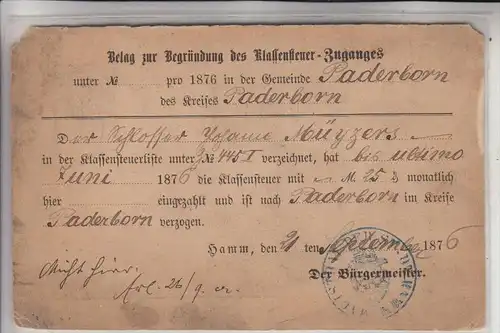 Belag zur Begründung des Klassensteuer-Zuganges
unter № pro 1876 in der Gemeinde Paderborn
des Kreises Paderborn
Der Schlosser Johann Müyzers
in der Klassensteuerliste unter № 445 I verzeichnet, hat bis ultimo
Juni 1876 die Klassensteuer mit M. 25 monatlich
hier eingezahlt und ist nach Paderborn im Kreise
Paderborn verzogen.
Hamm, den 21 ten September 1876
Der Bürgermeister.
Nicht hier.
26/9